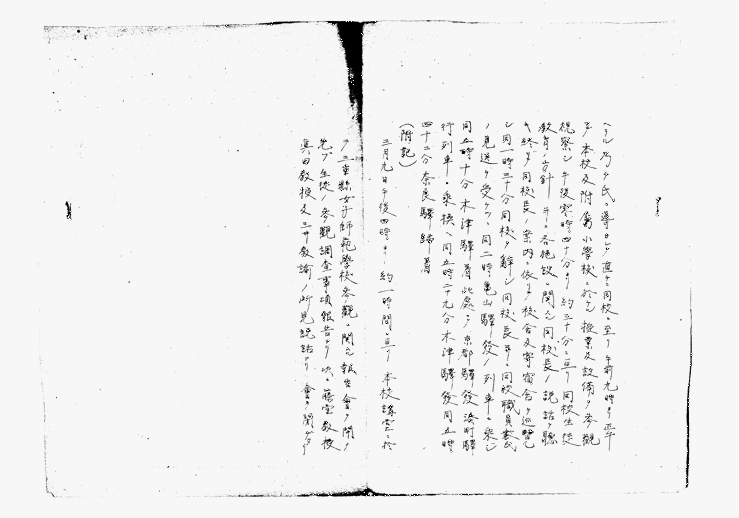 ヘラル乃チ氏ノ導ニヨリ直チニ同校ニ至リ午前九時ヨリ正午
マデ本校及附属小學校ニ於ケル授業及設備ヲ参觀
視察シ午後零時四十分ヨリ約三十分ニ亘リ同校生徒
教育ノ方針並ニ各施設ニ関スル同校長ノ説話ヲ聽
キ終テ同校長ノ案内ニ依リテ校舎及寄宿舎ヲ巡覽
シ同一時三十分同校ヲ辭シ同校長並ニ同校職員數氏
ノ見送ヲ受ケツヽ同二時亀山驛發ノ列車ニ乘シ
同五時十分木津驛着此處ニテ京都驛發湊町驛
行列車ニ乘換ヘ同五時二十九分木津驛發同五時
四十二分奈良驛歸着
(附記)
三月九日午後四時ヨリ約一時間ニ亘リ本校講堂ニ於
テ三重縣女子師範學校参觀ニ関スル報告會ヲ開ク
先ヅ生徒ノ参觀調査事項報告アリ次ニ藤堂教授
真田教授及三サ教諭ノ所見説話アリ會ヲ閉ヅ